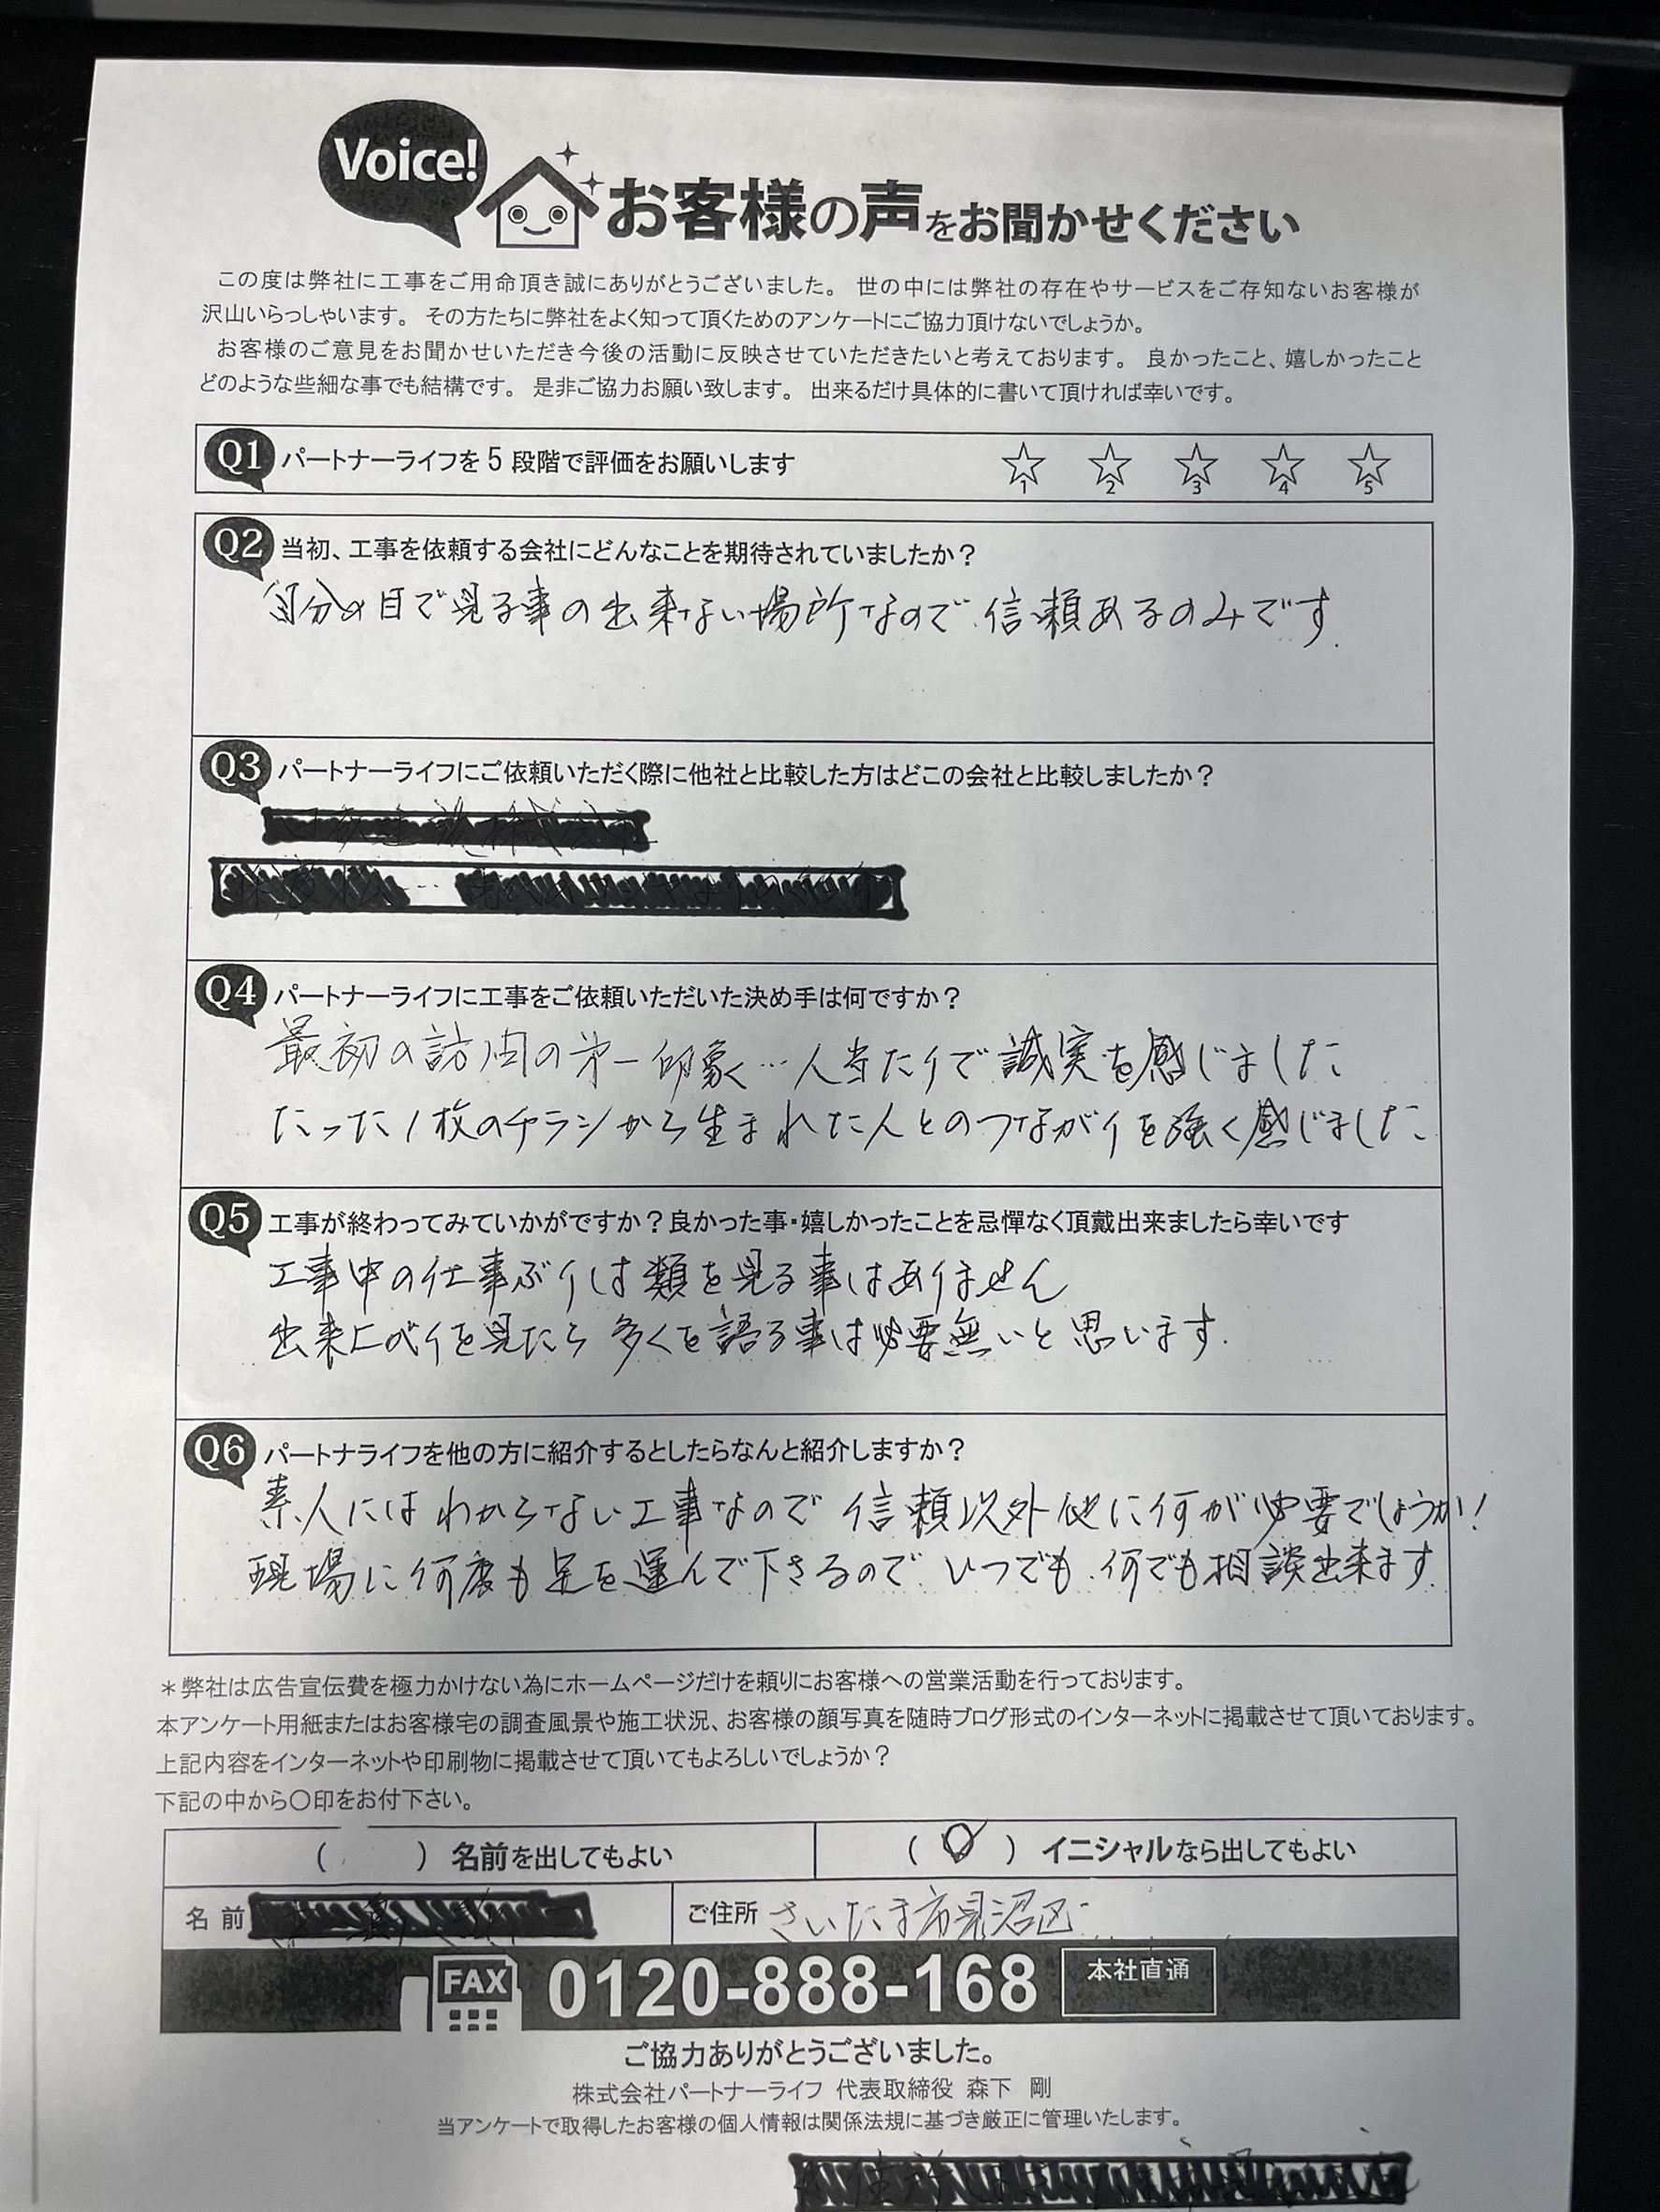 Voice!
お客様の声をお聞かせください
この度は弊社に工事をご用命頂き誠にありがとうございました。 世の中には弊社の存在やサービスをご存知ないお客様が
沢山いらっしゃいます。 その方たちに弊社をよく知って頂くためのアンケートにご協力頂けないでしょうか。
お客様のご意見をお聞かせいただき今後の活動に反映させていただきたいと考えております。 良かったこと、嬉しかったこと
どのような些細な事でも結構です。 是非ご協力お願い致します。 出来るだけ具体的に書いて頂ければ幸いです。
Q1 パートナーライフを5段階で評価をお願いします ☆1 ☆2 ☆3 ☆4 ☆5
Q2 当初、工事を依頼する会社にどんなことを期待されていましたか？
自分の目で見る事の出来ない場所なので信頼あるのみです.
Q3 パートナーライフにご依頼いただく際に他社と比較した方はどこの会社と比較しましたか？
Q4 パートナーライフに工事をご依頼いただいた決め手は何ですか？
最初の訪問の第一印象く…人当たりで誠実を感じました
たった1枚のチラシから生まれた人とのつながりを強く感じました
Q5 工事が終わってみていかがですか？良かった事・嬉しかったことを忌憚なく頂戴出来ましたら幸いです
工事中の仕事ぶりは類を見る事はありません
出来上がりを見たら多くを語る事は必要無いと思います.
Q6 パートナライフを他の方に紹介するとしたらなんと紹介しますか？
素人にはわからない工事なので信頼以外他に何が必要でしょうか!
現場に何度も足を運んで下さるので いつでも 何でも相談出来ます.
＊弊社は広告宣伝費を極力かけない為にホームページだけを頼りにお客様への営業活動を行っております。
本アンケート用紙またはお客様宅の調査風景や施工状況、お客様の顔写真を随時ブログ形式のインターネットに掲載させて頂いております。
上記内容をインターネットや印刷物に掲載させて頂いてもよろしいでしょうか？
下記の中から〇印をお付下さい。
（　　）名前を出してもよい （○）イニシャルなら出してもよい
名前 ご住所 さいたま市見沼区
FAX 0120-888-168 本社直通
ご協力ありがとうございました。
株式会社パートナーライフ 代表取締役 森下 剛
当アンケートで取得したお客様の個人情報は関係法規に基づき厳正に管理いたします。